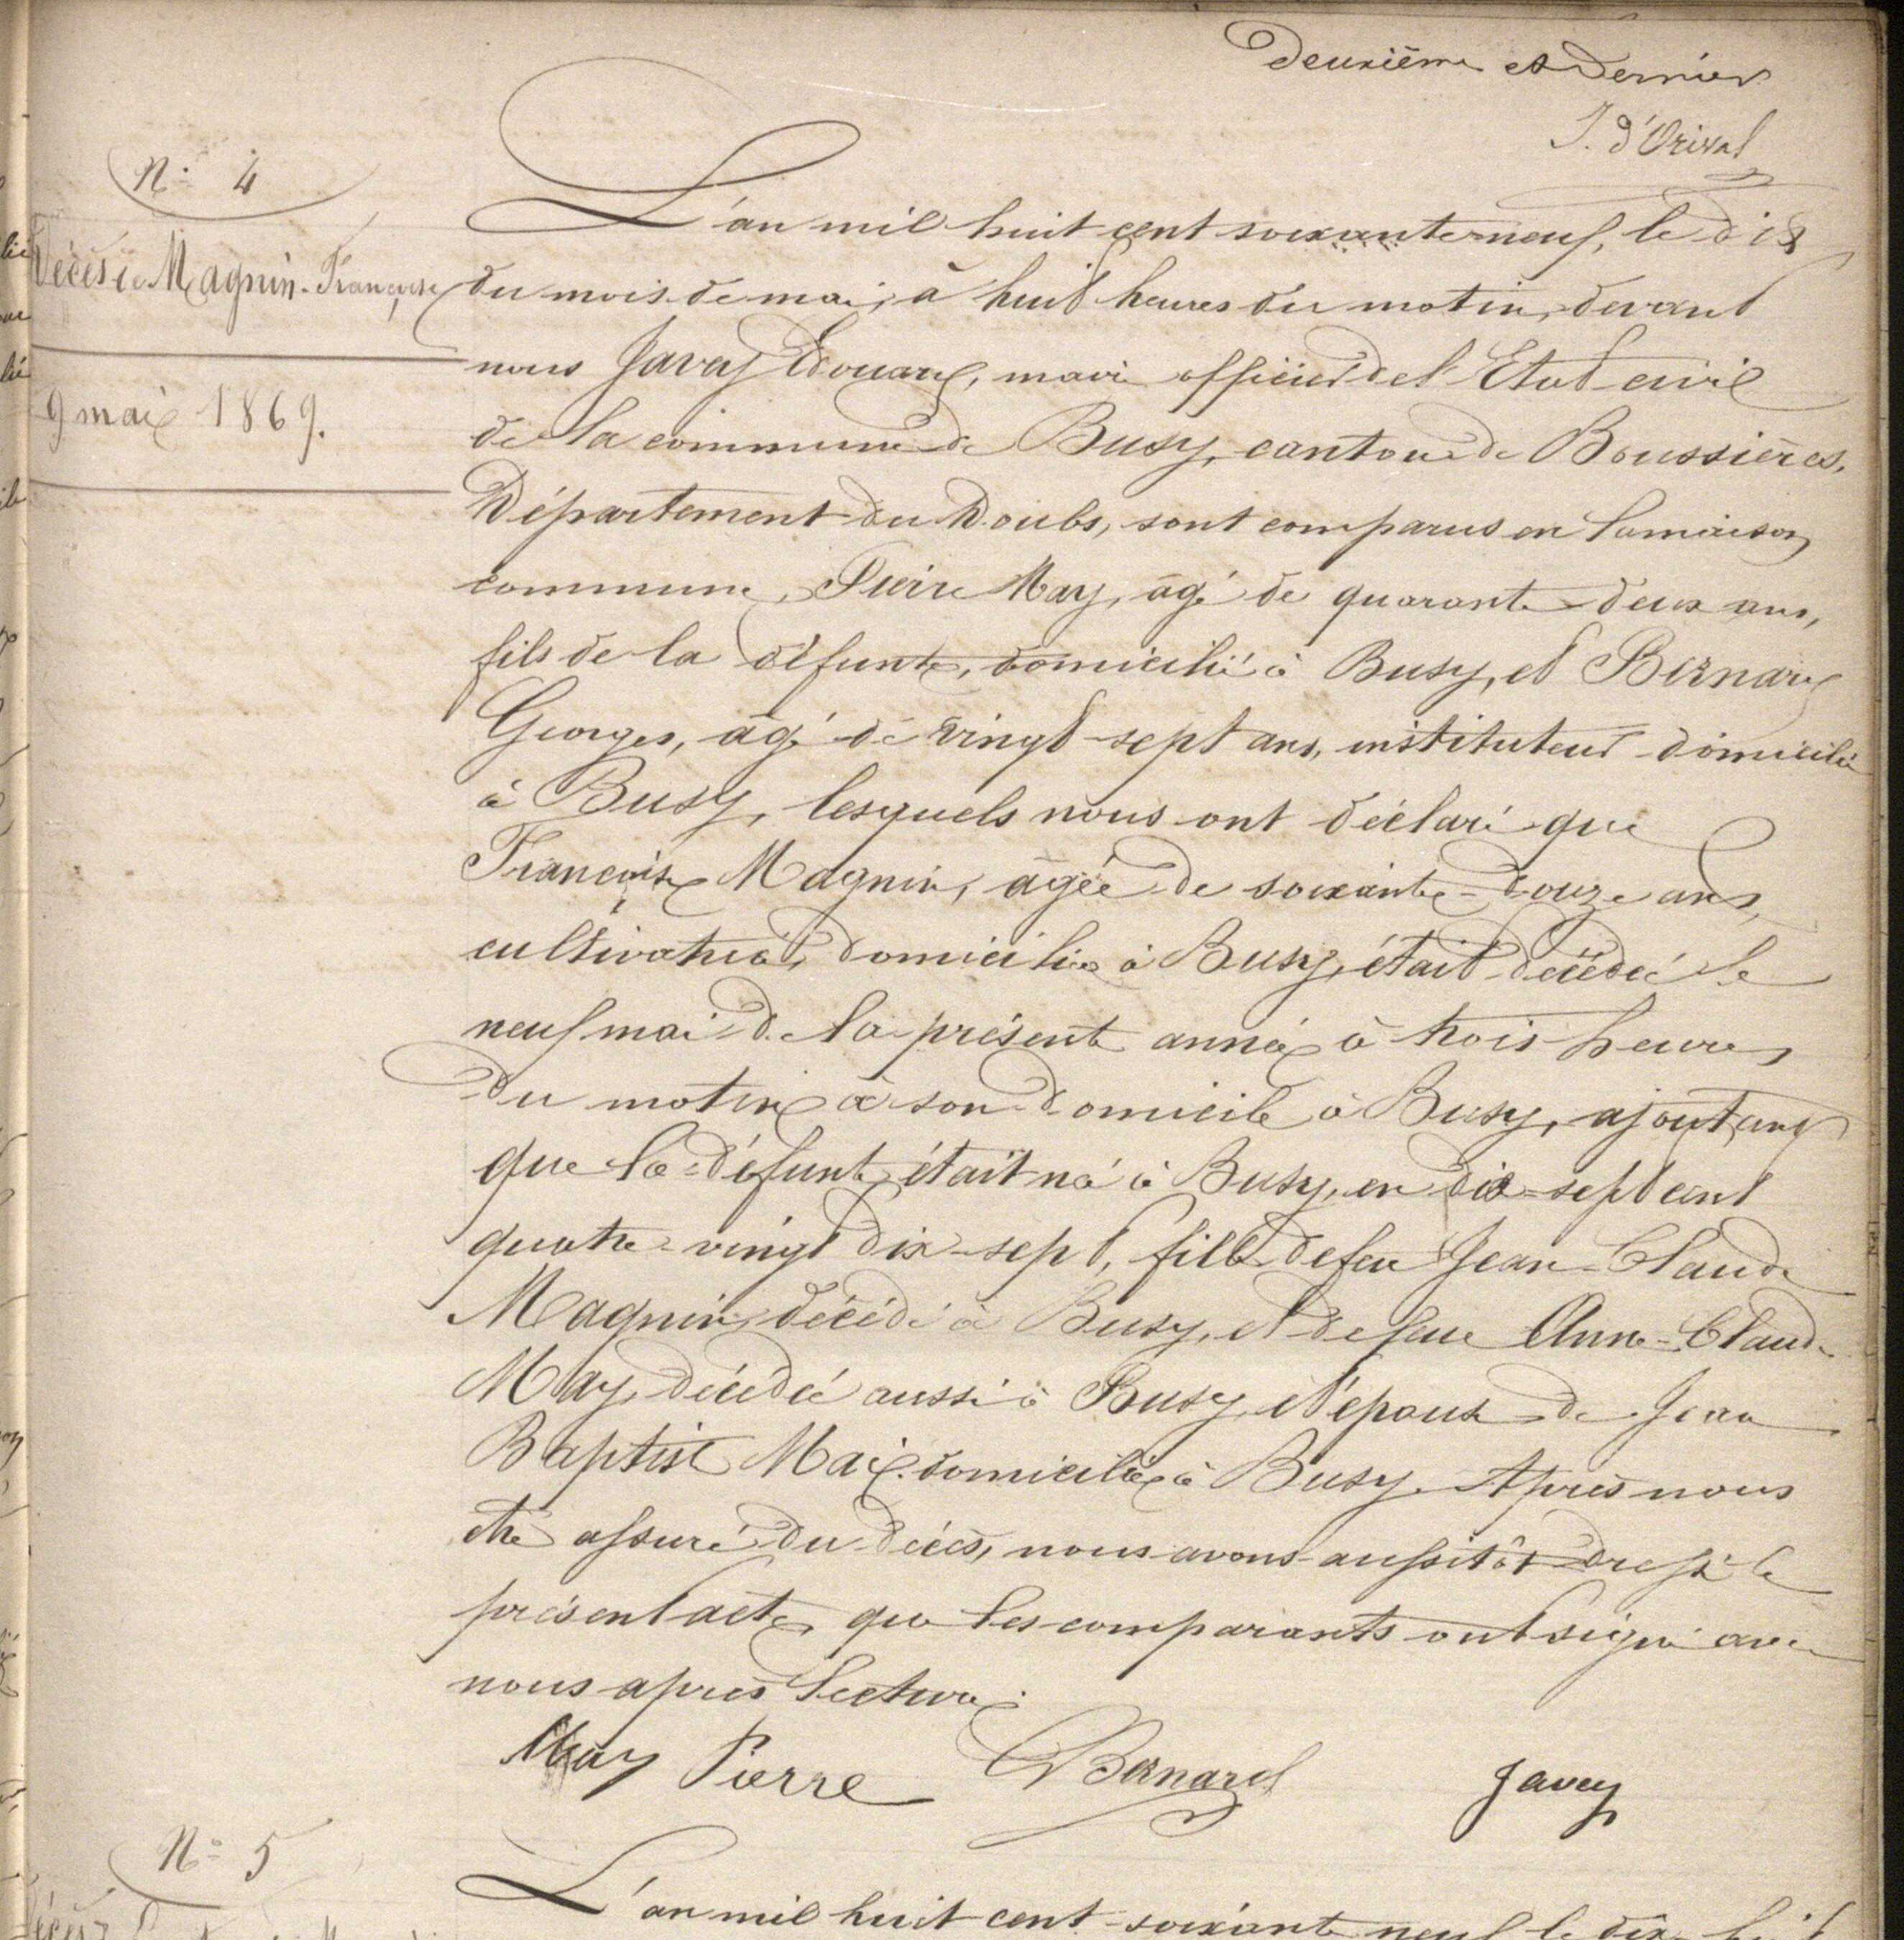 Deuxième et Dernier
J. d'Orival
N° 4
Décès de Magnin Françoise
9 mai 1869.
L'an mil huit cent soixante neuf, le dix
du mois de mai, à huit heures du matin, devant
nous Javey Edouard, maire officier de l'Etat civil
de la commune de Busy, canton de Boussières,
Département du Doubs, sont comparus en la maison
commune, Pierre May, âgé de quarante deux ans,
fils de la défunte, domicilié à Busy, et Bernard
Georges, âgé de vingt-sept ans, instituteur domicilié
à Busy, lesquels nous ont déclaré que
Françoise Magnin, âgée de soixante-douze ans,
cultivatrice, domiciliée à Busy, était décédée le
neuf mai de la présente année à trois heures
du matin à son domicile à Busy, ajoutant
que la défunte était né à Busy, en dix-sept cent
quatre-vingt dix-sept, fille de feu Jean-Claude
Magnin décédé à Busy, et de feue Anne-Claude
May, décédée aussi à Busy, et épouse de Jean
Baptiste Mai domicilié à Busy. Après nous
être assuré du décès, nous avons aussitôt dressé le
présent acte que les comparants ont signé avec
nous après lecture.
May Pierre Bernard Javey
N° 5
L'an mil huit cent soixante neuf le dix-huit